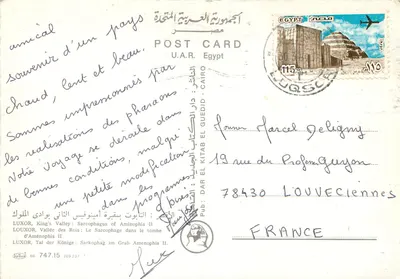 amical
souvenir d'un pays
chaud, lent et beau.
Sommes impressionnés par
les réalisations des pharaons.
Notre voyage se déroule dans
de bonnes conditions, malgré
une petite modification
dans le programme
prévu.
الجمهورية العربية المتحدة
مصر
POST CARD
U.A.R. Egypt
EGYPT
115
١١٥
LUQSOR
Monsieur Marcel Deligny
19 rue du Professeur Guyon
78430 LOUVECIENNES
FRANCE
الناشر : دار الكتاب الجديد - القاهرة
Pub : DAR EL KITAB EL GUEDID - CAIRO
التابوت بمقبرة أمينوفيس الثاني بوادي الملوك
LUXOR, King's Valley: Sarcophagus of Amenophis II
LUXOR, Vallée des Rois: Le Sarcophage dans la tombe
d'Aménophis II
LUXOR, Tal der Könige: Sarkophag im Grab Amenophis II.
747.15